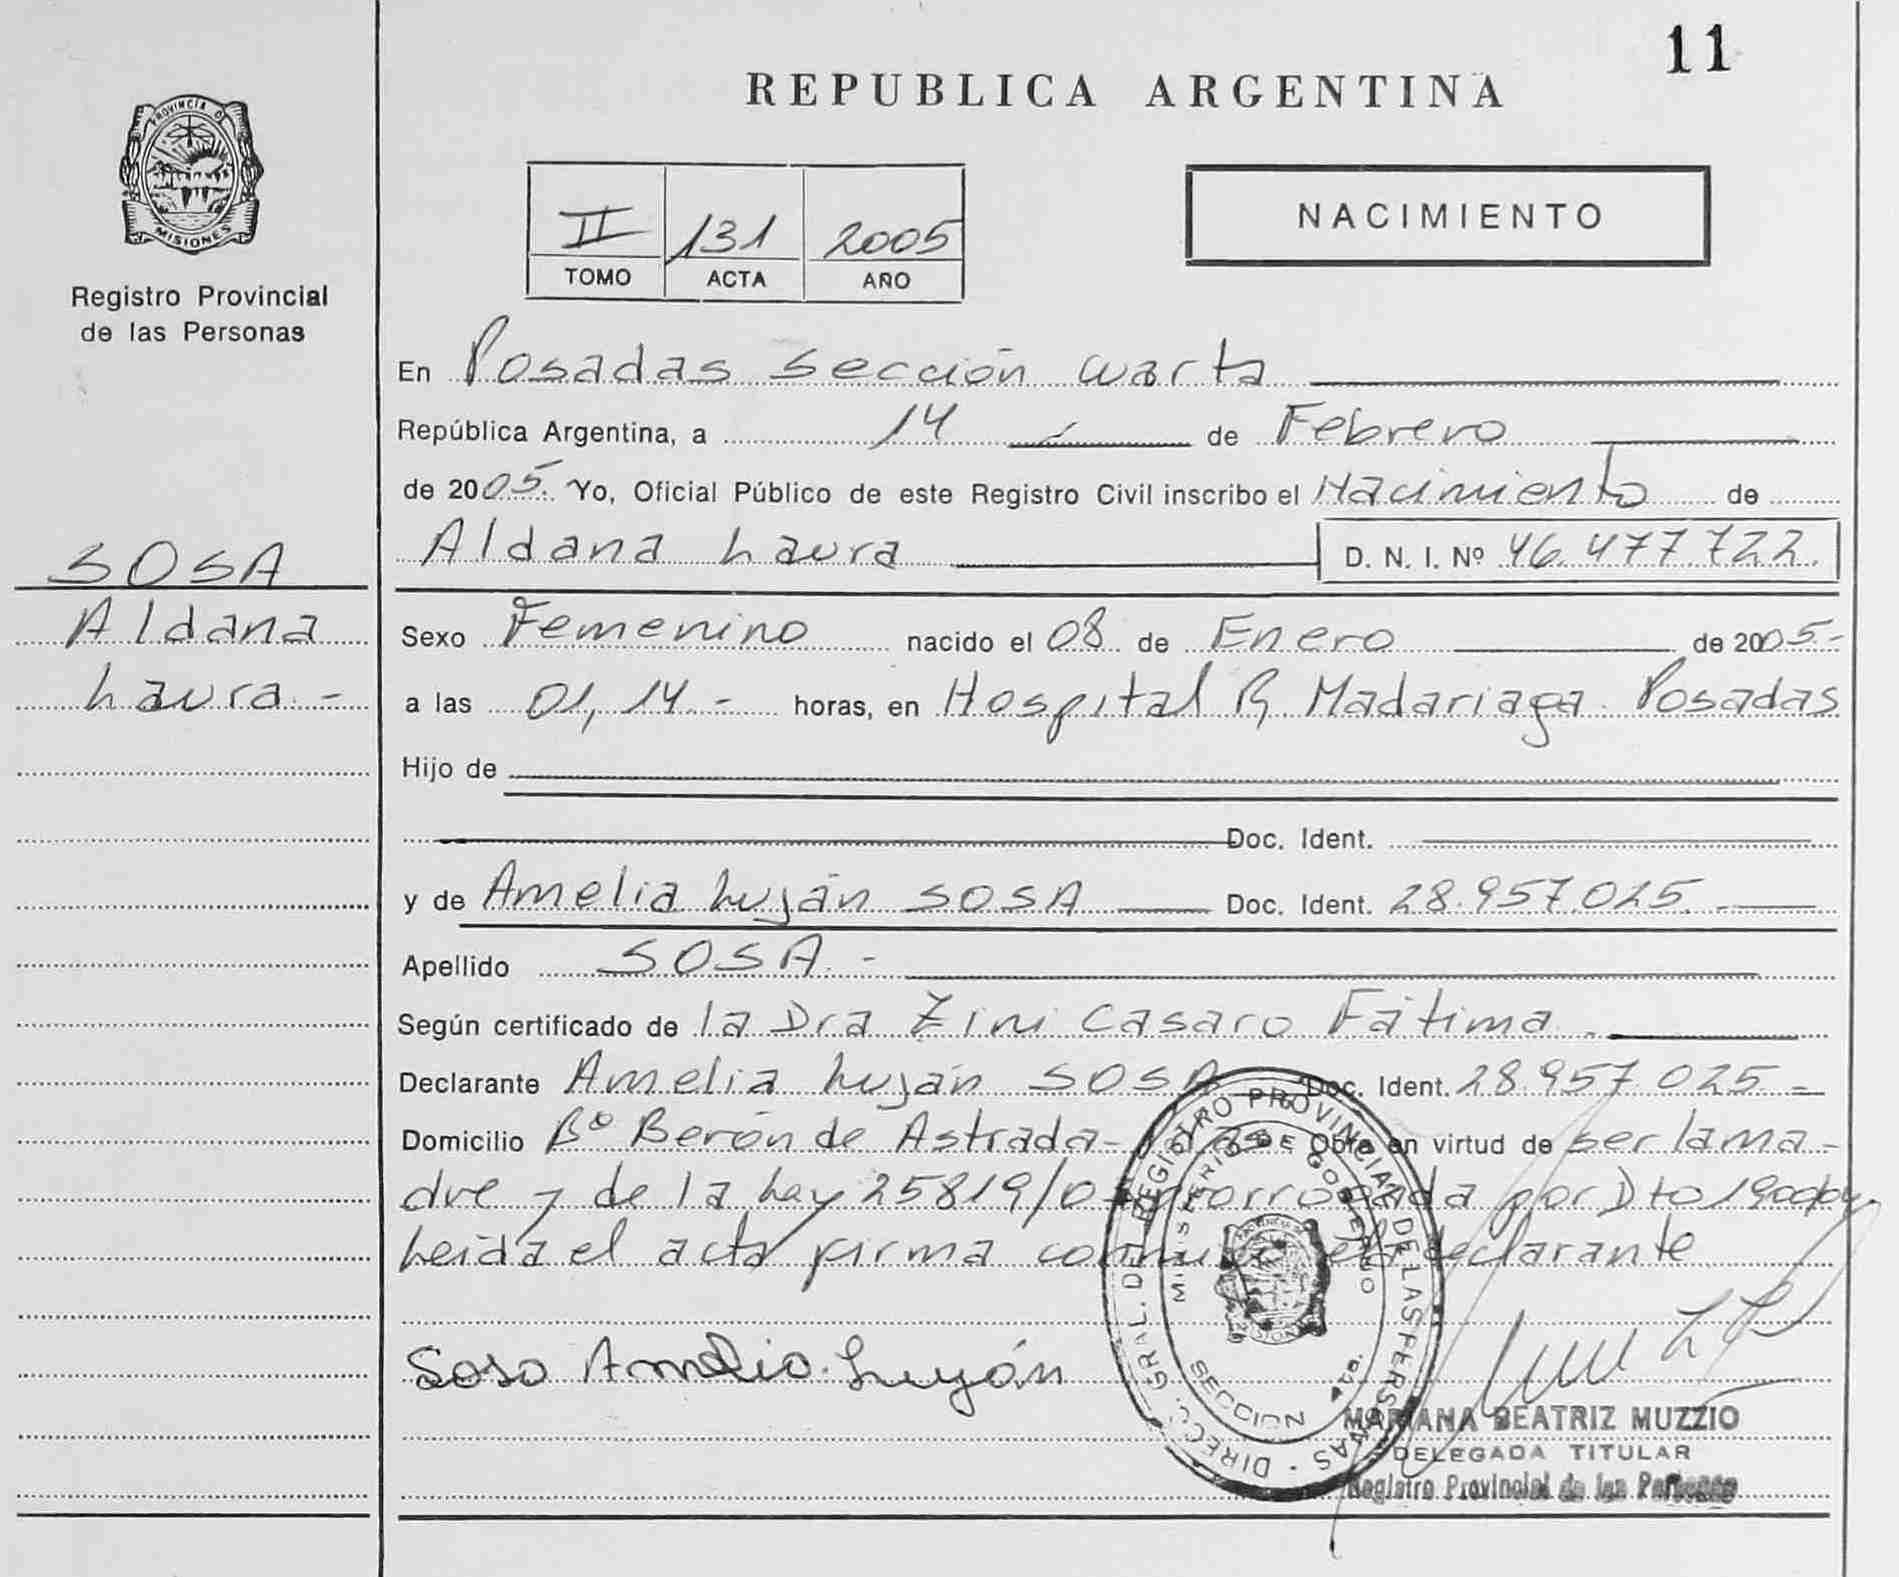 11
REPUBLICA ARGENTINA
PROVINCIA DE
MISIONES
Registro Provincial
de las Personas
II 131 2005
TOMO ACTA AÑO
NACIMIENTO
En Posadas sección cuarta
República Argentina, a 14 de Febrero
de 2005. Yo, Oficial Público de este Registro Civil inscribo el Nacimiento de
Aldana Laura D. N. I. Nº 46.477.722.
SOSA
Aldana
Laura.-
Sexo Femenino nacido el 08 de Enero de 2005.-
a las 01,14.- horas, en Hospital R. Madariaga. Posadas
Hijo de
Doc. Ident.
y de Amelia Luján SOSA Doc. Ident. 28.957.025.-
Apellido SOSA.-
Según certificado de la Dra Zini Casaro Fátima.
Declarante Amelia Luján SOSA Doc. Ident. 28.957.025-
Domicilio Bº Berón de Astrada- Obra en virtud de ser la ma-
dre y de la Ley 25819/ prorrogada por Dto
Leida el acta firma conmigo el declarante
Sosa Amelia Luján
DIRECC. GRAL. DEL REGISTRO PROVINCIAL DE LAS PERSONAS
MINISTERIO DE GOBIERNO
SECCION 4ta.
MARIANA BEATRIZ MUZZIO
DELEGADA TITULAR
Registro Provincial de las Personas